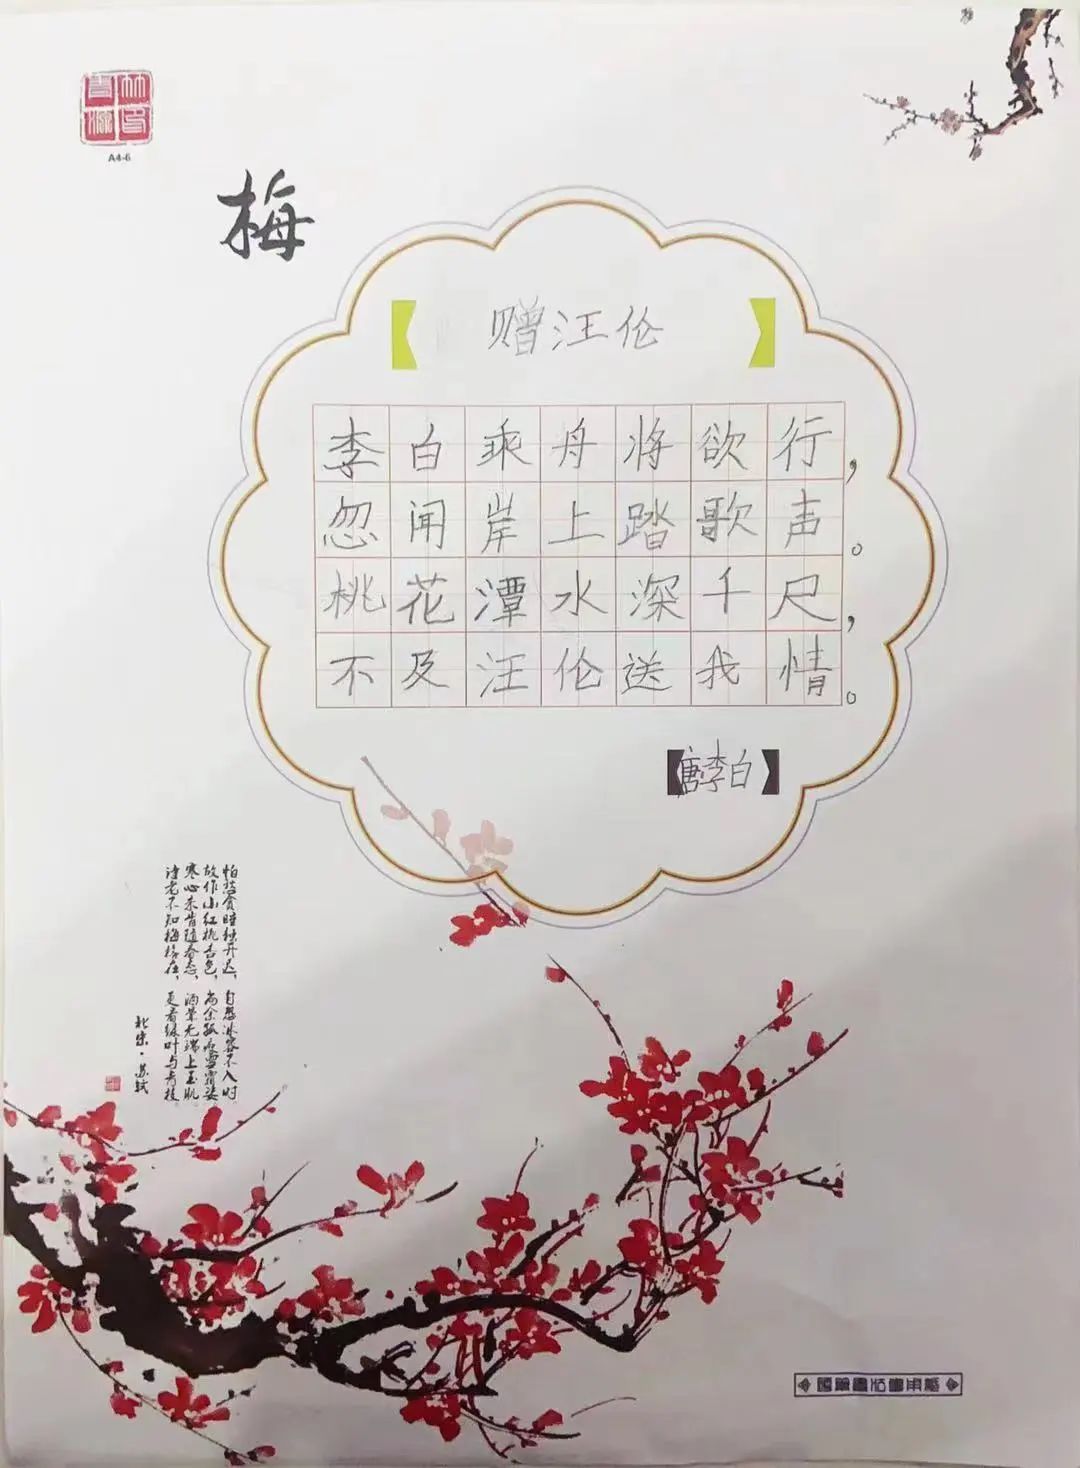 A4-6
梅
赠汪伦
李白乘舟将欲行，
忽闻岸上踏歌声。
桃花潭水深千尺，
不及汪伦送我情。
【唐李白】
怕愁贪睡独开迟，自恐冰容不入时。
故作小红桃杏色，尚余孤瘦雪霜姿。
寒心未肯随春态，酒晕无端上玉肌。
诗老不知梅格在，更看绿叶与青枝。
北宋·苏轼